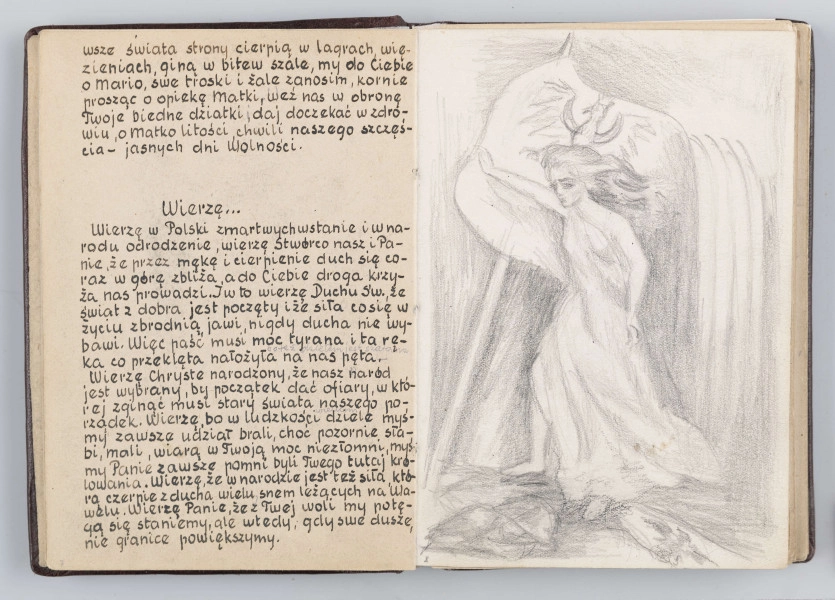 wsze świata strony cierpią w lagrach, wię-
zieniach, giną w bitew szale, my do Ciebie
o Mario, swe troski i żale zanosim, kornie
prosząc o opiekę Matki, weź nas w obronę
Twoje biedne dziatki, daj doczekać w zdro-
wiu, o Matko litości, chwili naszego szczęś-
cia - jasnych dni Wolności.
Wierzę...
Wierzę w Polski zmartwychwstanie i w na-
rodu odrodzenie, wierzę Stwórco nasz i Pa-
nie, że przez mękę i cierpienie duch się co-
raz w górę zbliża, a do Ciebie droga krzy-
ża nas prowadzi. I w to wierzę Duchu Św., że
świat z dobra jest poczęty i że siła co się w
życiu zbrodnią jawi, nigdy ducha nie wy-
bawi. Więc paść musi moc tyrana i ta rę-
ka co przeklęta nałożyła na nas pęta.
Wierzę Chryste narodzony, że nasz naród
jest wybrany, by początek dać ofiary, w któ-
rej zginąć musi stary świata naszego po-
rządek. Wierzę, bo w ludzkości dziele myś-
my zawsze udział brali, choć pozornie sła-
bi, mali, wiarą w Twoją moc niezłomni, myś-
my Panie zawsze pomni byli Twego tutaj kró-
lowania. Wierzę, że w narodzie jest też siła, któ-
ra czerpie z ducha wielu snem leżących na Wa-
welu. Wierzę Panie, że z Twej woli my potę-
gą się staniemy, ale wtedy, gdy swe dusze,
nie granice powiększymy.